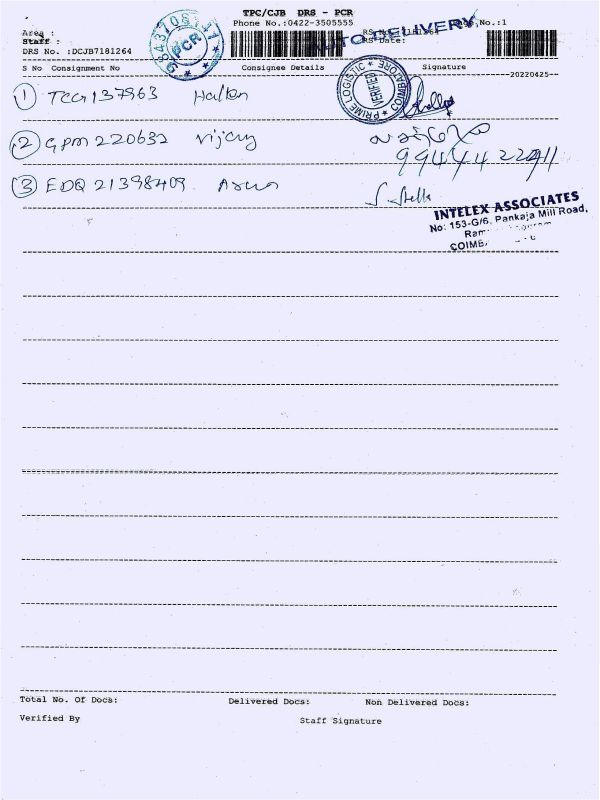 TPC/CJB DRS - PCR
Phone No.:0422-3505555
Area :
Staff :
DRS No. :DCJB7181264
PCR
AUTO DELIVERY
No.:1
DRS Date:
S No Consignment No Consignee Details Signature
--20220425--
PRIME LOGISTIC ★ COIMBATORE ★
VERIFIED
1 TCG 137963
2 GPM 220632 Vijay
9944442291
3 EDQ 21398409 Arun
S. Stella
INTELEX ASSOCIATES
No: 153-G/6, Pankaja Mill Road,
Total No. Of Docs: Delivered Docs: Non Delivered Docs:
Verified By Staff Signature